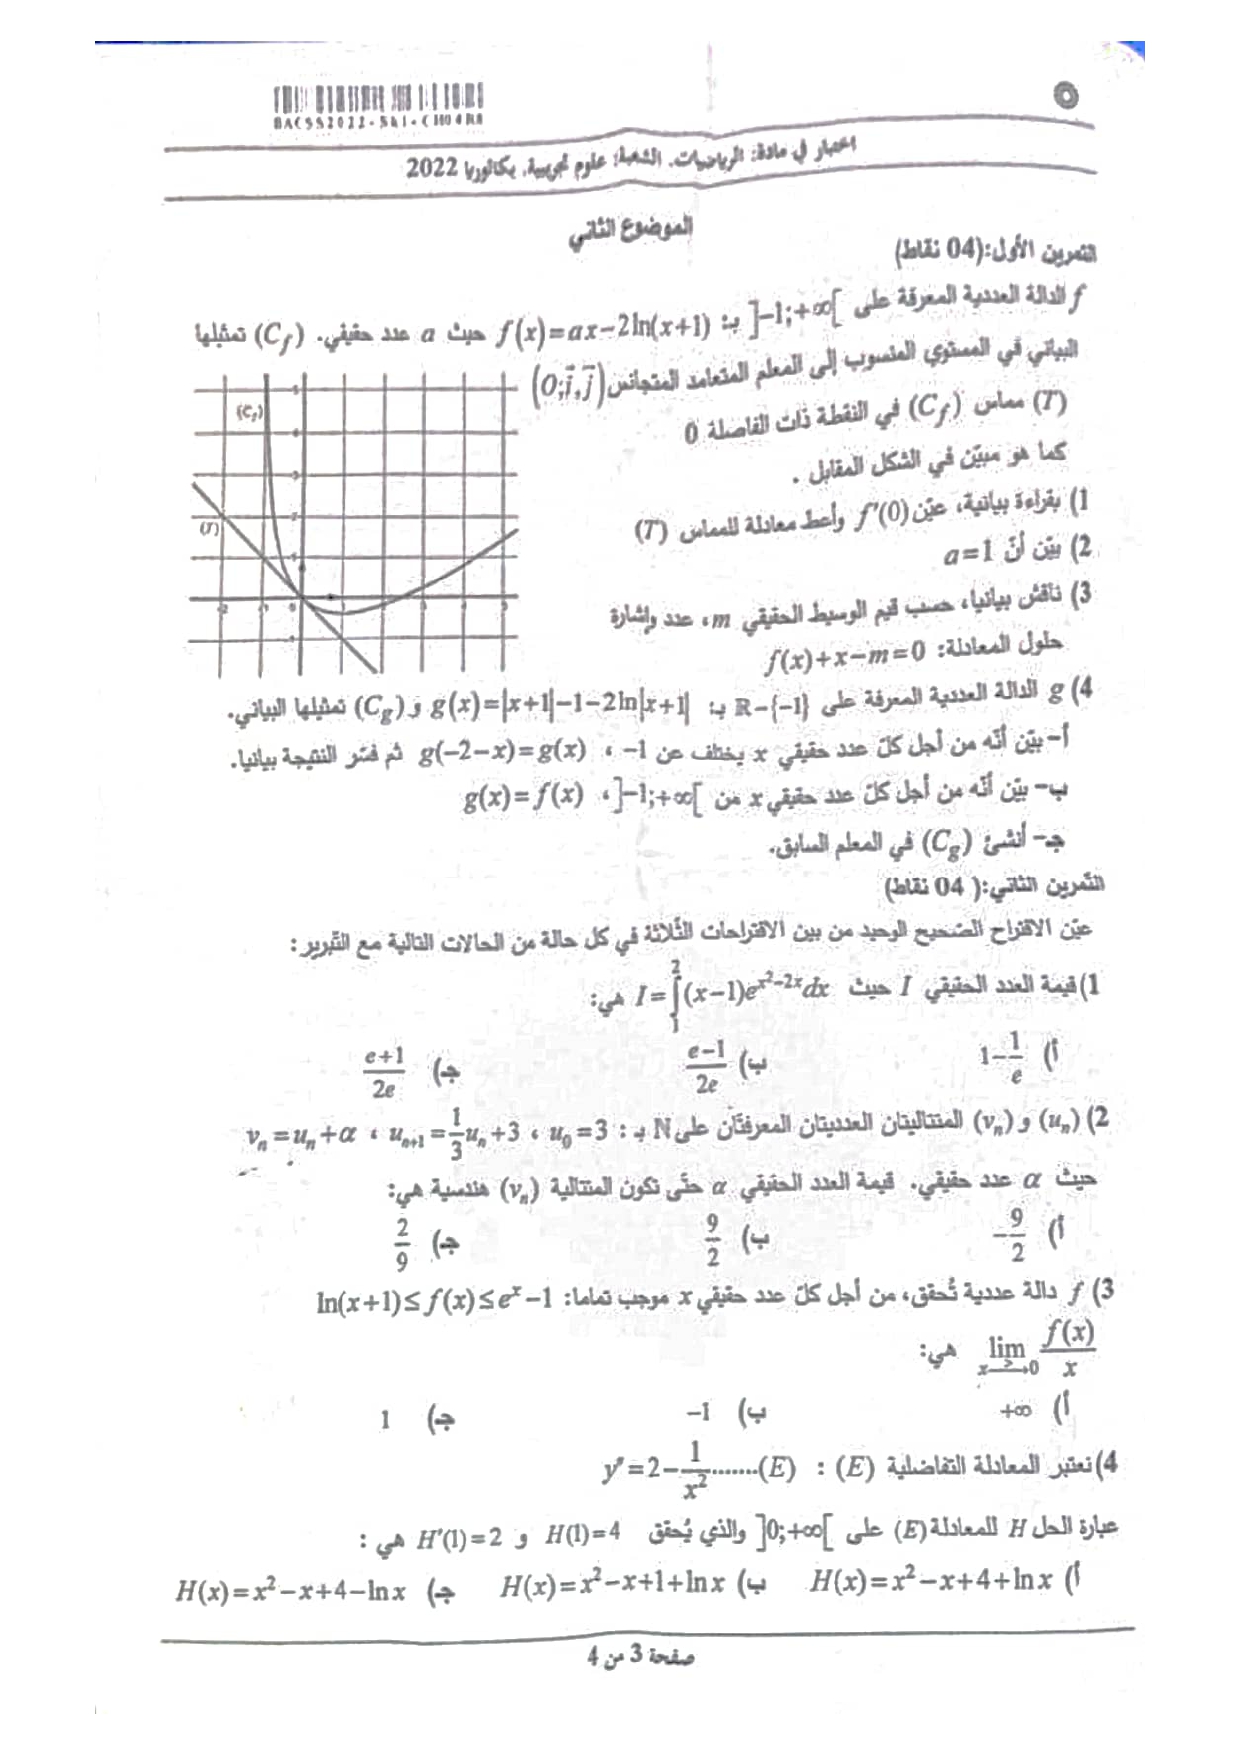 BACSS2022-SE1-CH04RR
اختبار في مادة: الرياضيات. الشعبة: علوم تجريبية. بكالوريا 2022
الموضوع الثاني
التمرين الأول:(04 نقاط)
f الدالة العددية المعرفة على ]-1;+∞[ بـ: f(x)=ax-2ln(x+1) حيث a عدد حقيقي. (Cf) تمثيلها
البياني في المستوي المنسوب إلى المعلم المتعامد المتجانس (O;i⃗,j⃗)
(T) مماس (Cf) في النقطة ذات الفاصلة 0
كما هو مبيّن في الشكل المقابل .
(Cf)
(T)
1) بقراءة بيانية، عيّن f'(0) وأعط معادلة للمماس (T)
2) بيّن أنّ a=1
3) ناقش بيانيا، حسب قيم الوسيط الحقيقي m، عدد وإشارة
حلول المعادلة: f(x)+x-m=0
4) g الدالة العددية المعرفة على ℝ-{-1} بـ: g(x)=|x+1|-1-2ln|x+1| و (Cg) تمثيلها البياني.
أ- بيّن أنّه من أجل كلّ عدد حقيقي x يختلف عن -1 ، g(-2-x)=g(x) ثم فسّر النتيجة بيانيا.
ب- بيّن أنّه من أجل كلّ عدد حقيقي x من ]-1;+∞[ ، g(x)=f(x)
جـ- أنشئ (Cg) في المعلم السابق.
التّمرين الثاني:( 04 نقاط)
عيّن الاقتراح الصّحيح الوحيد من بين الاقتراحات الثّلاثة في كل حالة من الحالات التالية مع التّبرير:
1) قيمة العدد الحقيقي I حيث I=∫₁²(x-1)e^(x²-2x)dx هي:
أ) 1-1/e ب) (e-1)/2e جـ) (e+1)/2e
2) (un) و (vn) المتتاليتان العدديتان المعرفتان على ℕ بـ : u0=3 ، un+1=1/3 un+3 ، vn=un+α
حيث α عدد حقيقي. قيمة العدد الحقيقي α حتّى تكون المتتالية (vn) هندسية هي:
أ) -9/2 ب) 9/2 جـ) 2/9
3) f دالة عددية تُحقق، من أجل كلّ عدد حقيقي x موجب تماما: ln(x+1)≤f(x)≤e^x-1
lim x→>0 f(x)/x هي:
أ) +∞ ب) -1 جـ) 1
4) نعتبر المعادلة التفاضلية (E) : y''=2-1/x².......(E)
عبارة الحل H للمعادلة (E) على ]0;+∞[ والذي يُحقق H(1)=4 و H'(1)=2 هي :
أ) H(x)=x²-x+4+lnx ب) H(x)=x²-x+1+lnx جـ) H(x)=x²-x+4-lnx
صفحة 3 من 4